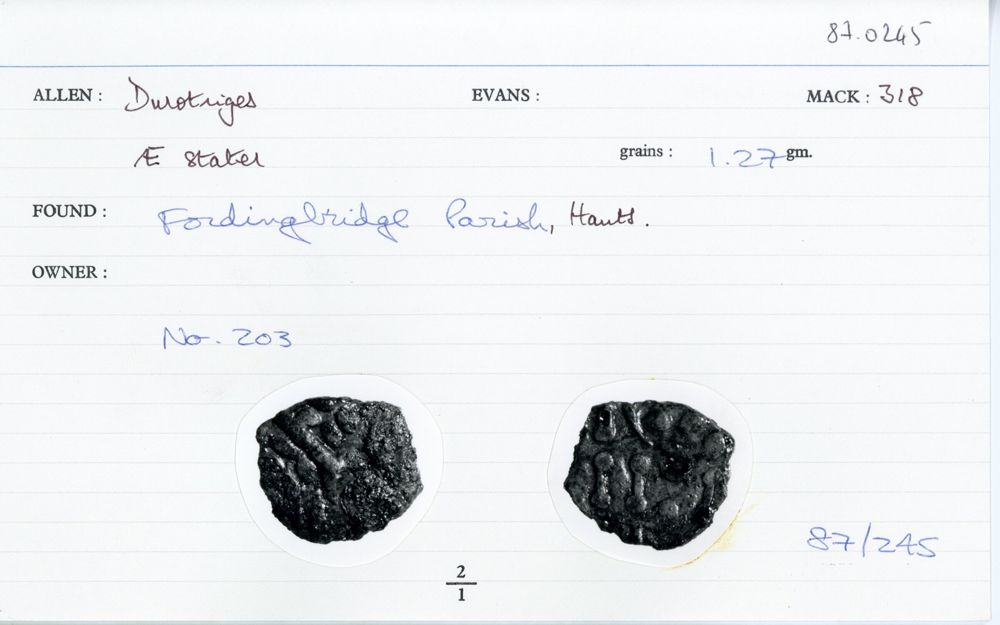 87.0245
ALLEN : Durotriges EVANS : MACK : 318
Æ stater grains : 1.27 gm.
FOUND : Fordingbridge Parish, Hants.
OWNER :
No. 203
87/245
2
1